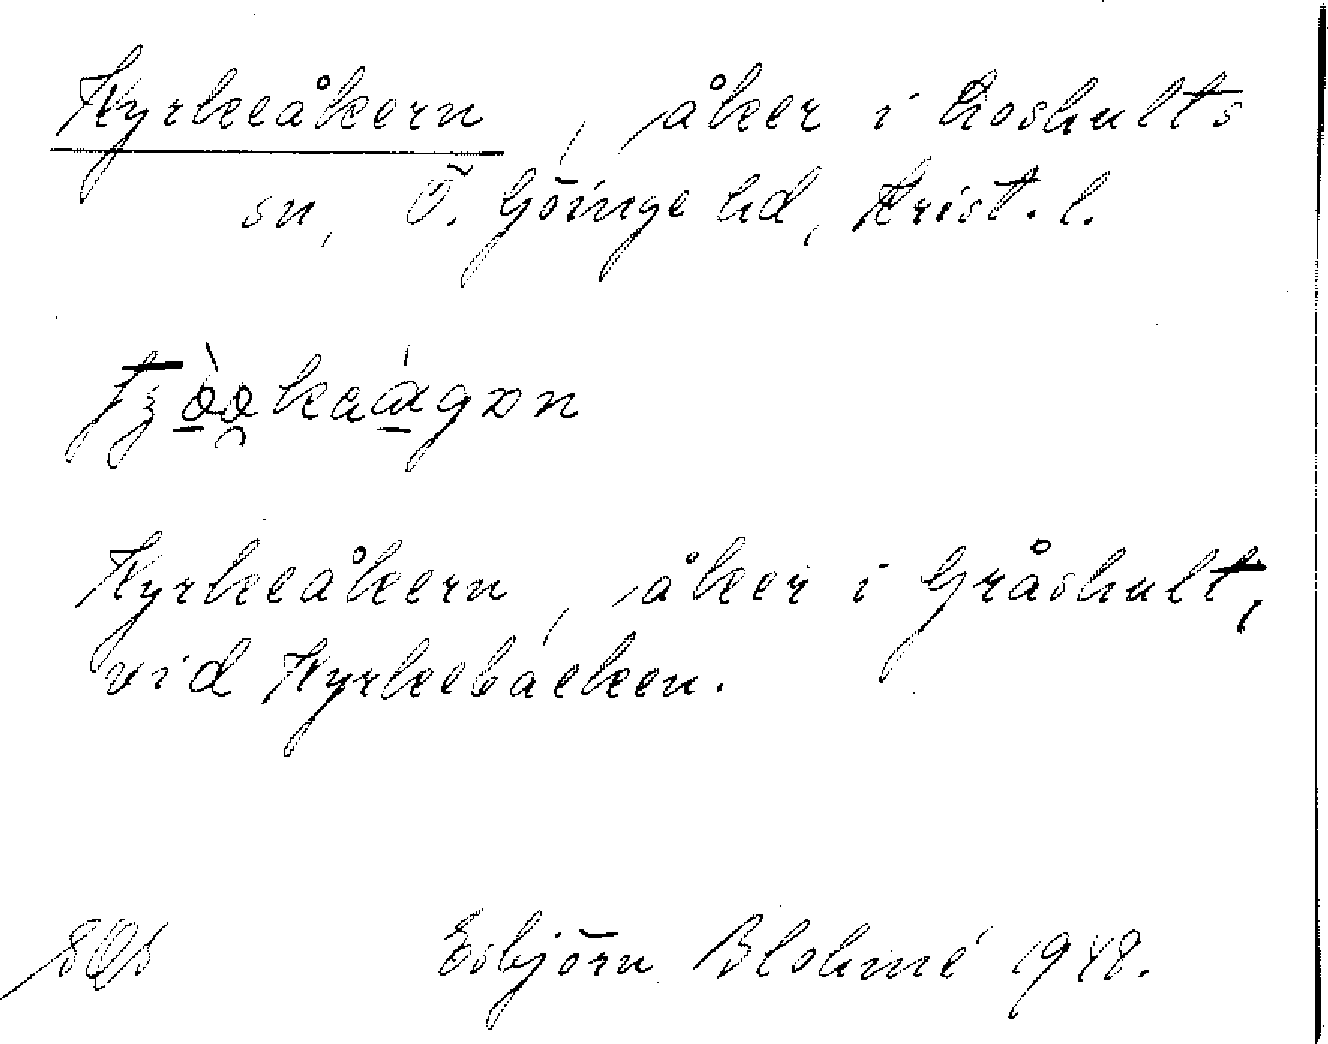 Kyrkeåkern, åker i Loshults
sn, Ö. Göinge hd, Krist. l.
Kyrkeåkern, åker i Gråshult,
vid Kyrkebäcken.
Esbjörn Blohmé 1948.